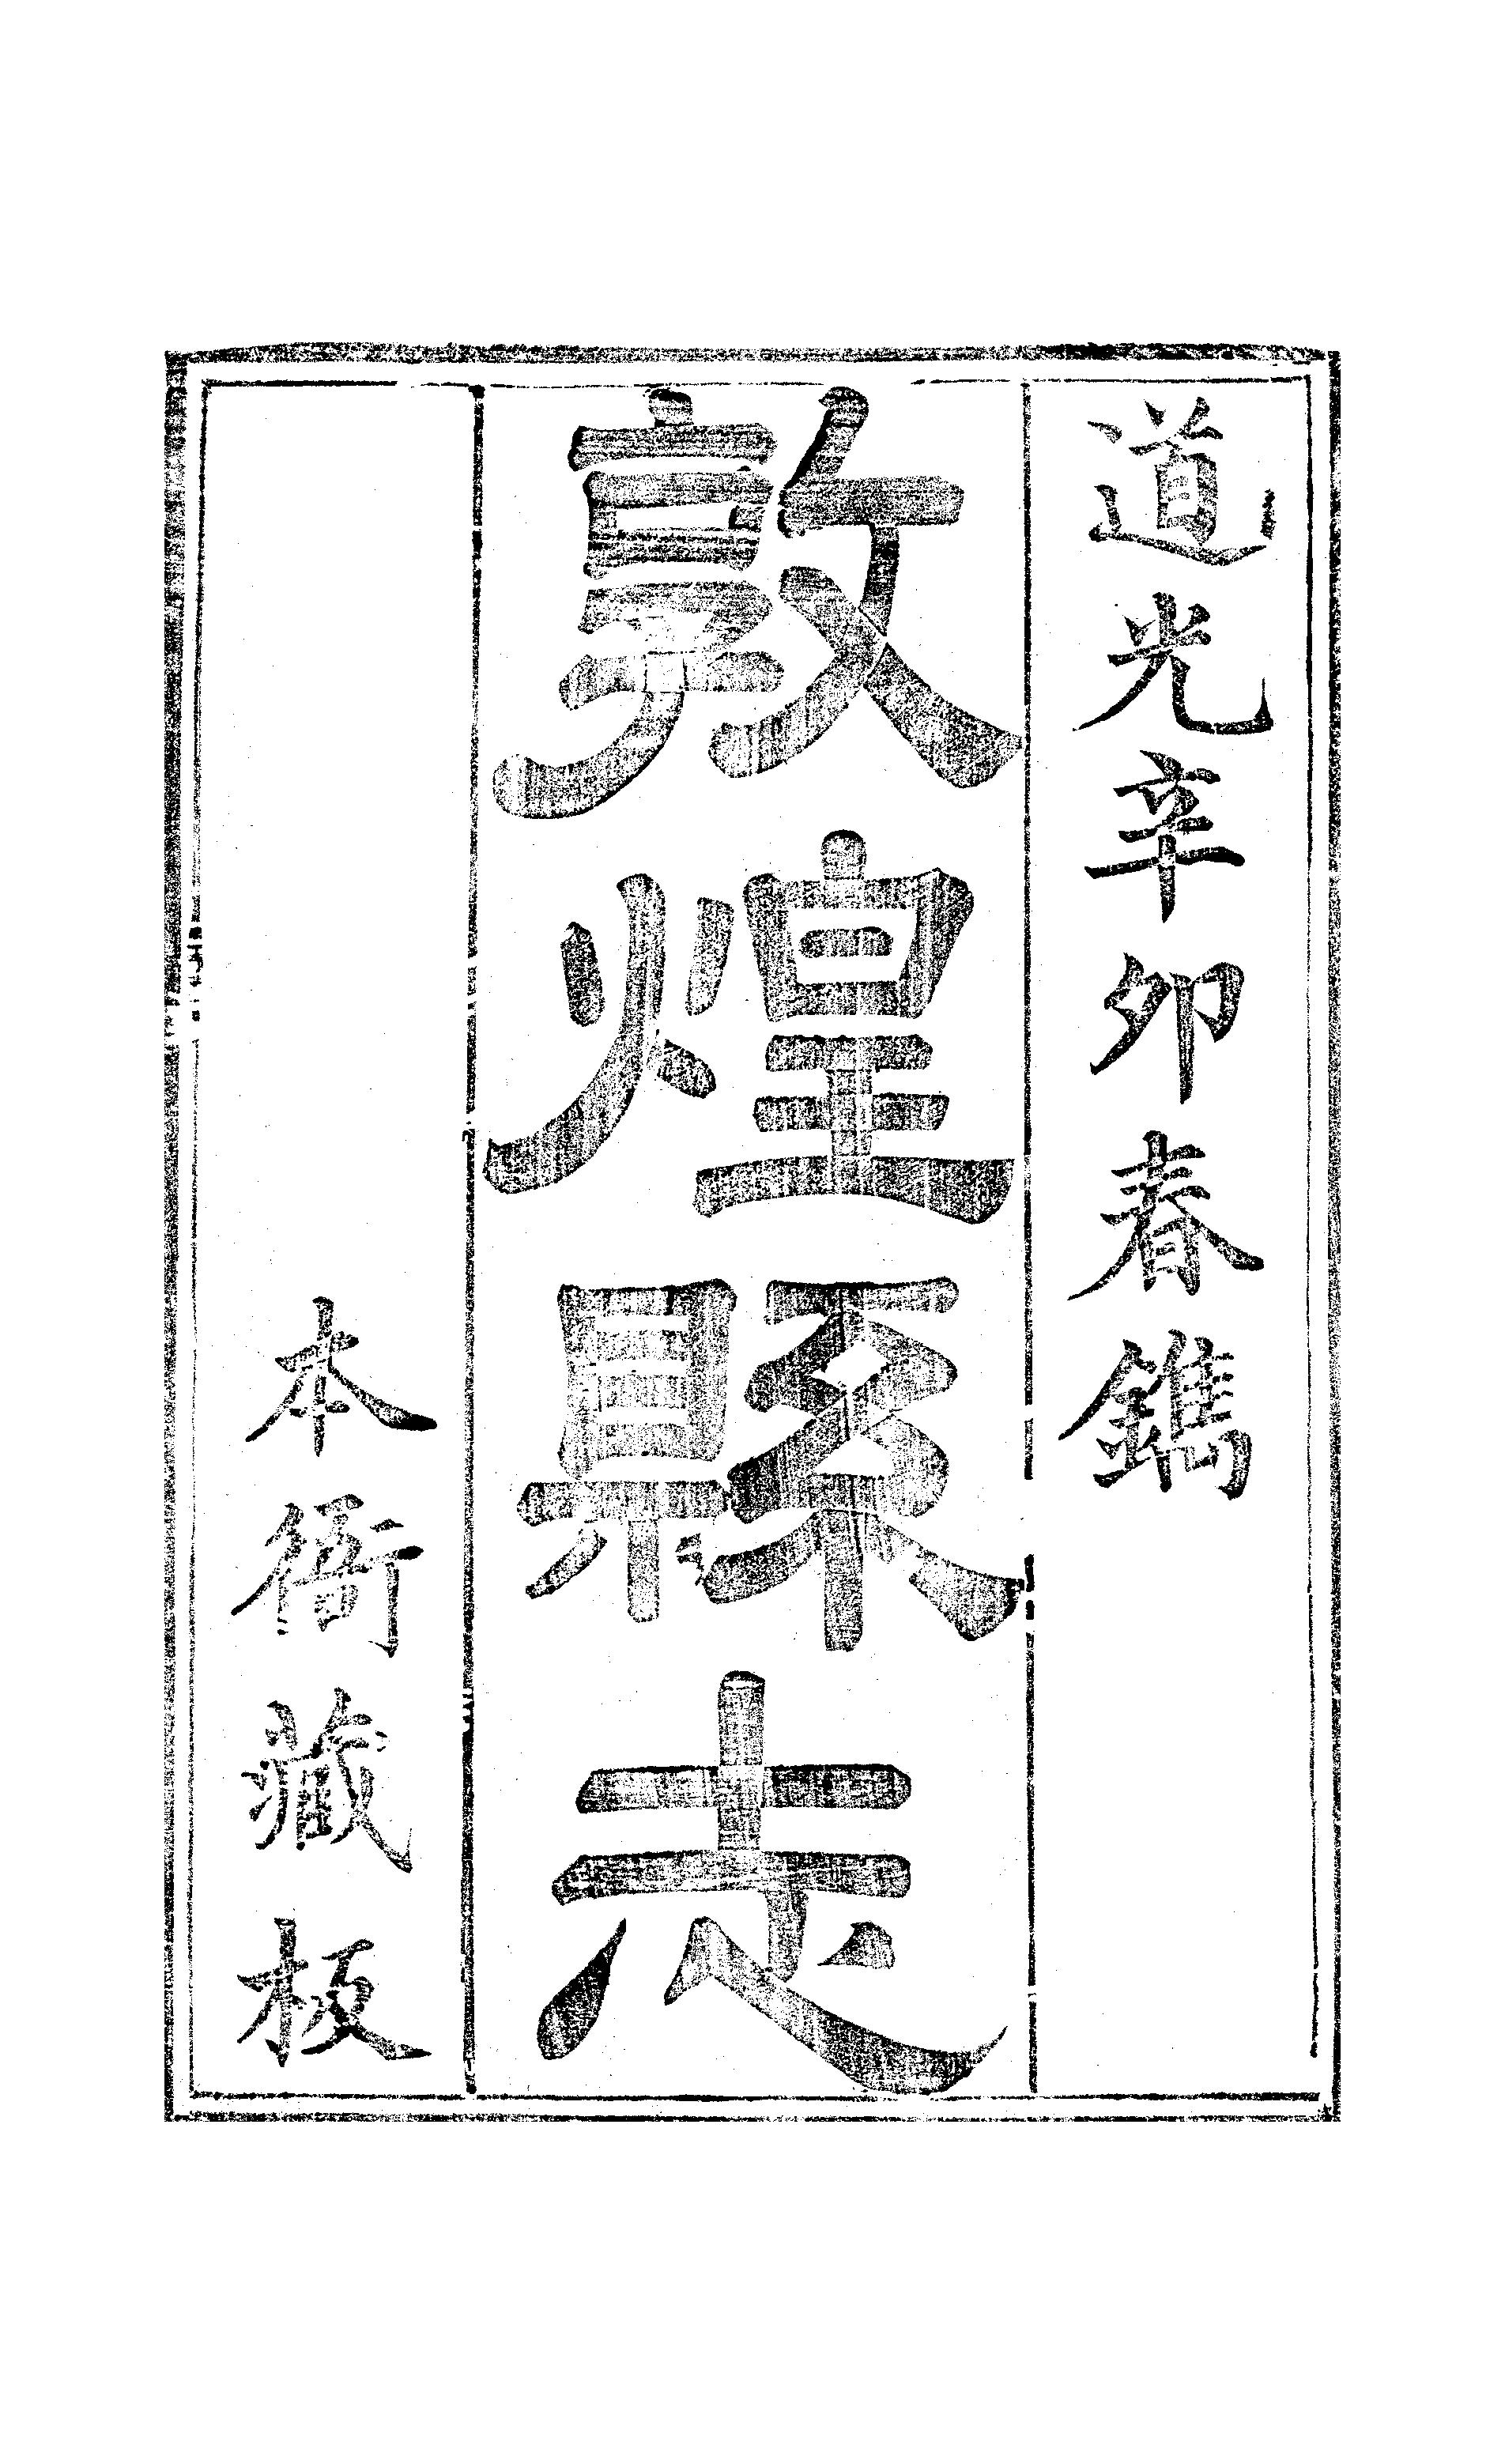 道光辛卯春鐫
敦煌縣志
本衙藏板